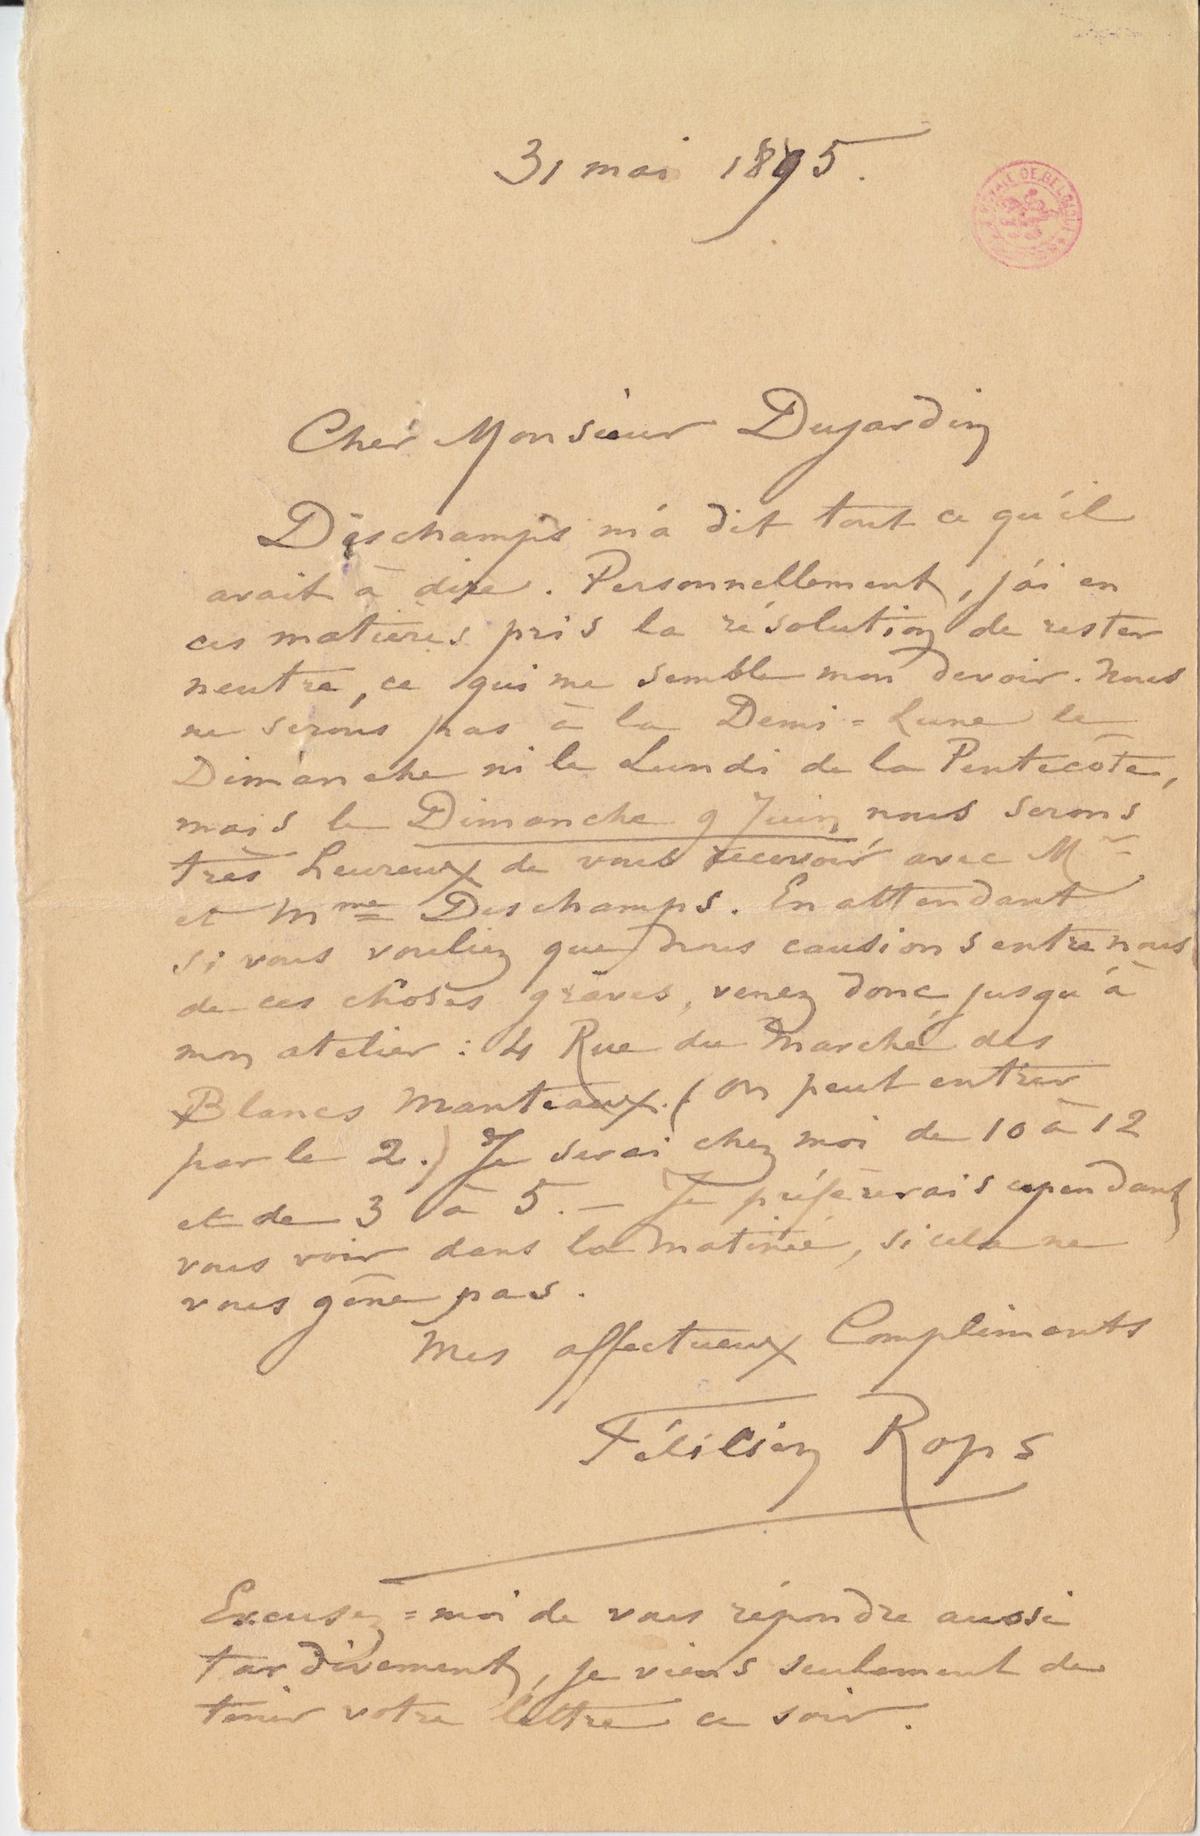 31 mai 1895.
YALE DE BELGIQU
Cher Monsieur Dujardin
Deschamps m'a dit tout ce qu'il
avait à dire. Personnellement, j'ai en
ces matières pris la résolution de rester
neutre, ce qui me semble mon devoir. Nous
ne serons pas à la Demi=Lune le
Dimanche ni le Lundi de la Pentecôte,
mais le Dimanche 9 Juin nous serons
très heureux de vous recevoir avec Mr
et Mme Deschamps. En attendant
si vous vouliez que nous causions entre nous
de ces choses graves, venez donc jusqu'à
mon atelier : 4 Rue du Marché des
Blancs Manteaux. (On peut entrer
par le 2.) Je serai chez moi de 10 à 12
et de 3 à 5. – Je préfèrerais cependant
vous voir dans la matinée, si cela ne
vous gêne pas.
Mes affectueux Compliments
Félicien Rops
Excusez=moi de vous répondre aussi
tardivement, je viens seulement de
tenir votre lettre ce soir.